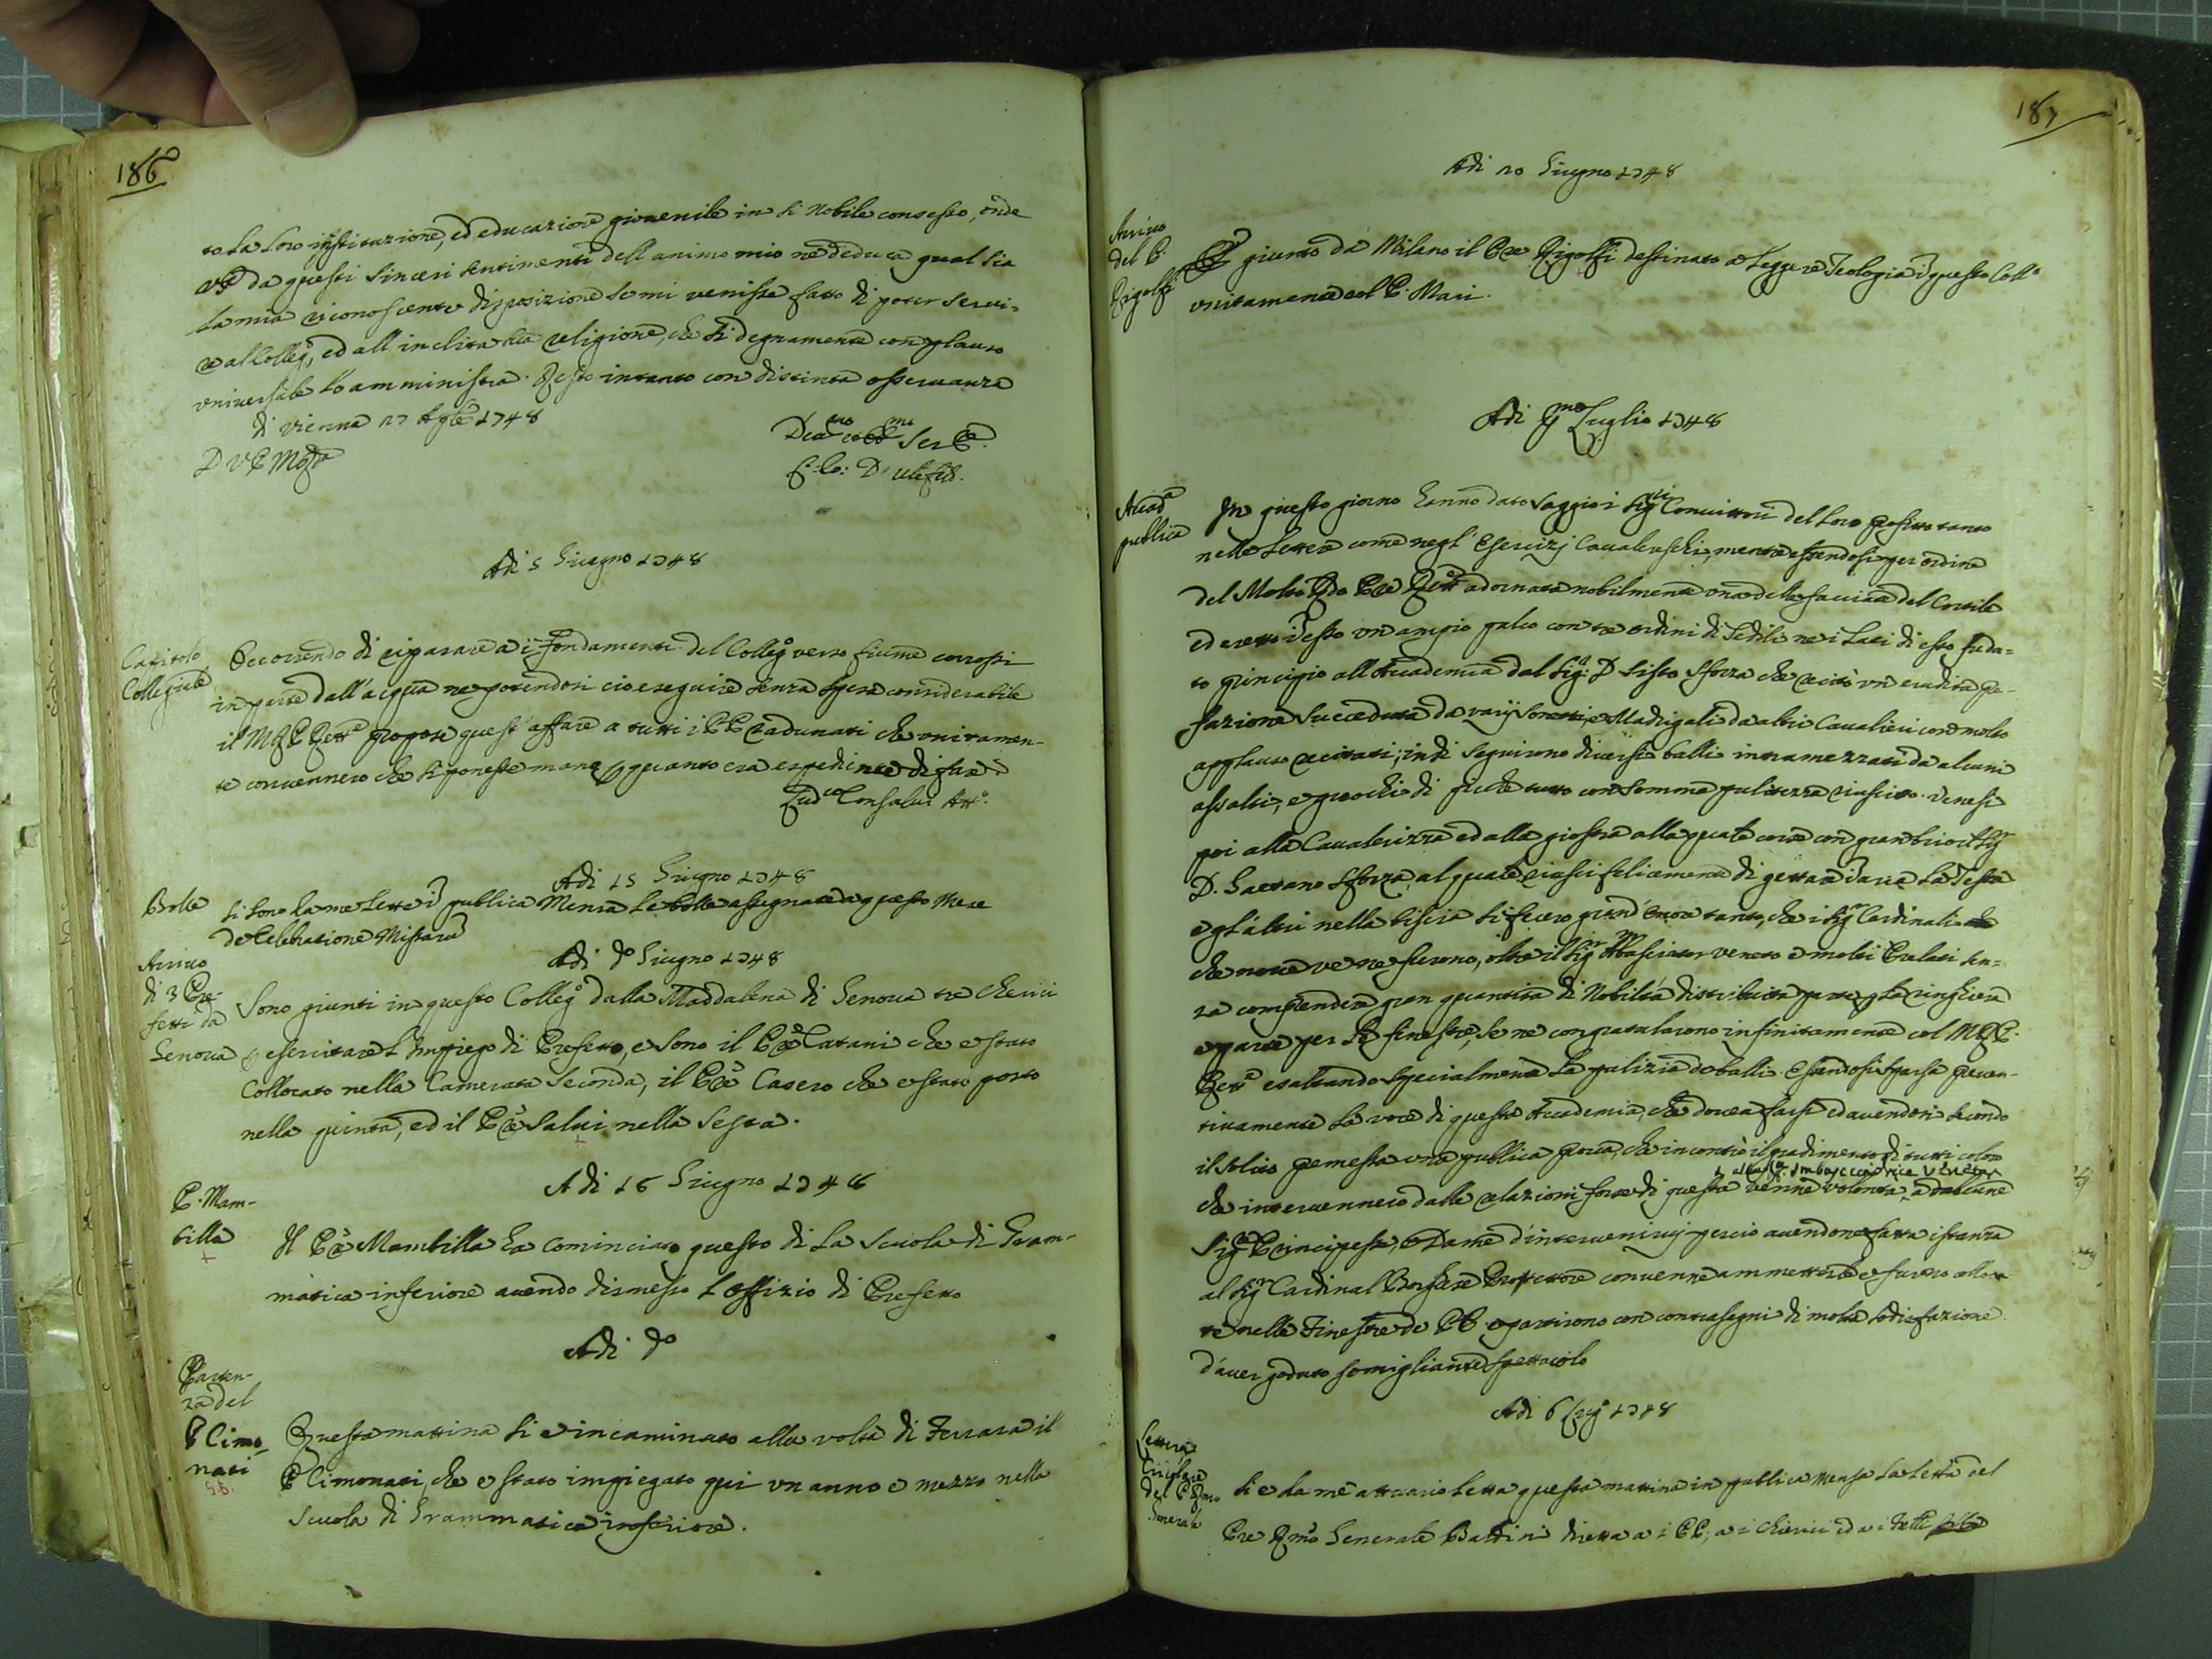 186
to la loro institutione, ed educazione giovenile in sì Nobile consesso, onde
VP da questi sinceri sentimenti dell'animo mio ne deduca qual sia
la mia riconoscente disposizione se mi venisse fatto di poter servi-
re al Colleg.o, ed all'inclita sua religione, che sì degnamente con plauso
universale lo amministra. Resto intanto con distinta osservanza
di Vienna 27 Aple 1748
D V P Mo Rda
Devmo et Obbmo Ser Re.
C: Co: D' Ulefeld.
Adi 5 Giugno 1748
Capitolo
Collegiale
Occorrendo di riparare a i fondamenti del Collego verso fiume corrosi
in parte dall'acqua ne potendosi cio eseguire senza spesa considerabile
il M R P Rettre propose quest'affare a tutti i PP radunati che unitamen-
te convennero che si ponesse mano p quanto era espediente di fare.
Ludco Consalvi Atto.
Adi 15 Giugno 1748
Bolle
Si sono da me lette i publica Mensa le bolle assegnate a questo Mese
de Celebratione Missarum
Adi do Giugno 1748
Arrivo
di 3 Pre-
fetti da
Genova
Sono giunti in questo Collego dalla Maddalena di Genova tre chierici
p esercitare l'Impiego di Prefetto, e sono il Pre Catani che e stato
Collocato nella Camerata Seconda, il Pre Casero che e stato posto
nella quinta, ed il Pre Salvi nella Sesta.
Adi 16 Giugno 1748
P. Mam-
billa
Il Pre Mambilla ha cominciato questo di la Scuola di Gram-
matica inferiore avendo dismesso l'offizio di Prefetto
Adi do
Parten-
za del
P Cimo-
nati
S.B.
Questa mattina si e incaminato alla volta di Ferrara il
P Cimonati, che e stato impiegato qui un anno e mezzo nella
Scuola di Grammatica inferiore.
187
Adi 20 Giugno 1748
Arrivo
del P.
Rigolfi
E giunto da Milano il Pre Rigolfi destinato a leggere Teologia i questo Collo
unitamente col P. Mari.
Adi pmo Luglio 1748
Accada
publica
In questo giorno hanno dato saggio i Sigri Convittori del loro profitto tanto
nelle lettere come negl'Esercizj Cavalereschi, mentre essendosi per ordine
del Molto Rdo Pre Rettre adornata nobilmente una delle facciate del Cortile
ed eretto i esso un ampio palco con tre ordini di sedili ne i lati di esso fu da-
to principio all'Accademia dal Sigr D Sisto Sforza che recitò un erudita pre-
fazione succeduta da varij Sonetti, e Madrigali da altri Cavalieri con molto
applauso recitati; indi seguirono diversi balli intramezzati da alcuni
assalti, e giuochi di picche tutto con somma pulitezza riuscito. Venesi
poi alla Cavalerizza ed alla giostra alla quale corse con gran brio il Sigr
D. Gaetano Sforza, al quale riuscì felicemente di gettare i aria la Testa
e gl'altri nella bissera si fecero grand'onore tanto, che i Sigri Cardinali
che nove ve ne furono, oltre il Sigr Ambasciator veneto e molti Prelati sen-
za comprendere gran quantità di Nobiltà distribuita parte p la ringhiera
e parte per le finestre, se ne congratularono infinitamente col M R P
Rettre esaltando specialmente la pulizia de balli. Essendosi sparsa preven-
tivamente la voce di questa Accademia, che dovea farsi ed avendosi secondo
il solito premessa una publica prova, che incontrò il gradimento di tutti coloro
che intervennero dalle relazioni forse di questa venne volontà, ad alcune
e alla Sigra Imbasciatrice Veneta
Sigre Principesse, e Dame d'intervenirvj percio avendone fatta istanza
al Sigr Cardinal Borghese Protettore convenne ammetterle e furono collora-
te nelle Finestre de PP. e partirono con contrasegni di molta sodisfazione
d'aver goduto somigliante spettacolo
Adi 6 Lugo 1748
Lettera
Circolare
del P Rmo
Generale
Si e da me attuario letta questa mattina in publica Mensa la Lettra del
Pre Rmo Generale Battini diretta a i PP, a i Chierici ed a i Fratelli